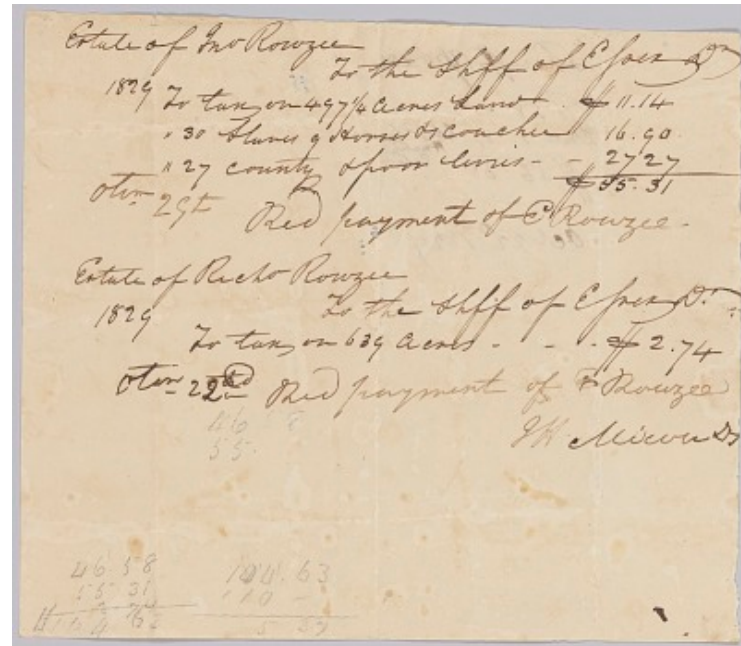 Estate of Jno Rowzee
To the Shff of Essex Dr
1829 To tax on 497 1/4 Acres Land . $ 11.14
" 30 Slaves 9 Horses & Coachee 16.90
" 27 county & poor levies - - 27 27
$ 55.31
29th Recd payment of E Rowzee -
Estate of Richd Rowzee
1829 To the Shff of Essex Dr
To tax on 639 Acres - - . $ 2.74
22nd Recd payment of E Rowzee
46 8
55
46.58 104.63
55 31